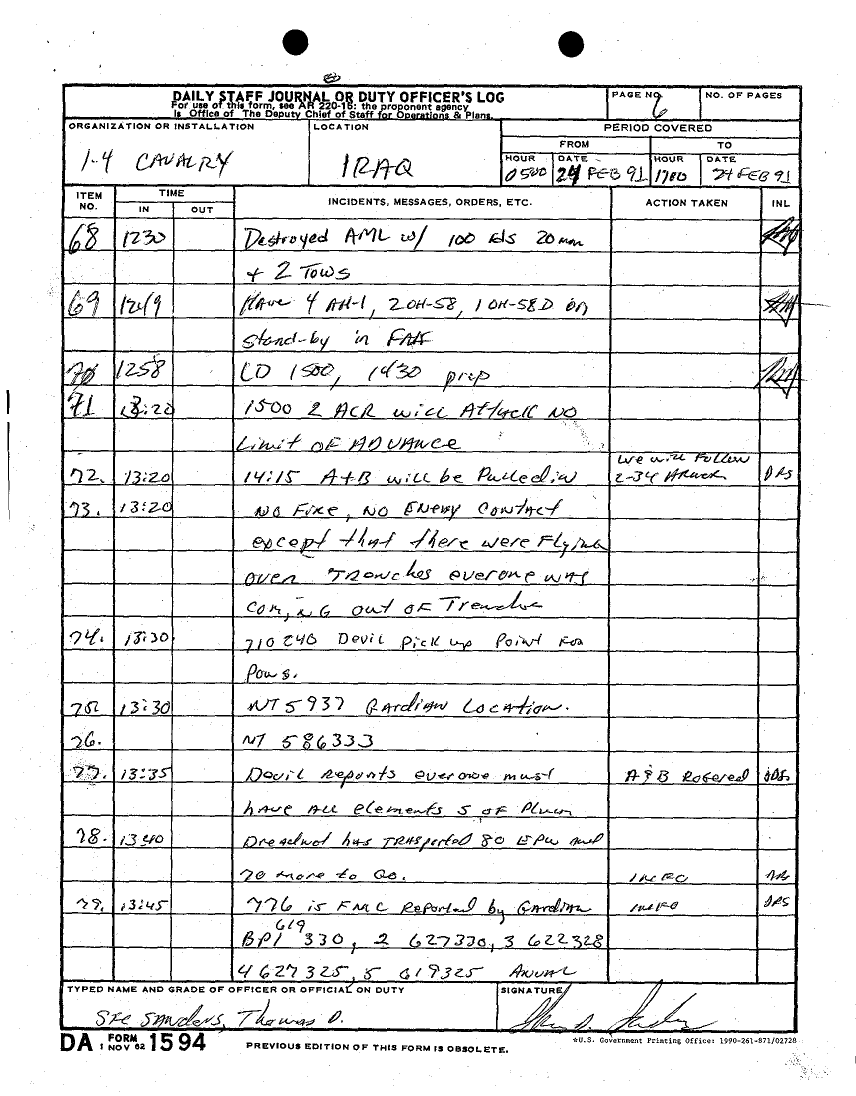 DAILY STAFF JOURNAL OR DUTY OFFICER'S LOG
For use of this form, see AR 220-15: the proponent agency
is Office of The Deputy Chief of Staff for Operations & Plans.
PAGE NO.
6
NO. OF PAGES
ORGANIZATION OR INSTALLATION
1-4 CAVALRY
LOCATION
IRAQ
PERIOD COVERED
FROM
TO
HOUR DATE HOUR DATE
0500 24 FEB 91 1700 24 FEB 91
ITEM NO. TIME INCIDENTS, MESSAGES, ORDERS, ETC. ACTION TAKEN INL
IN OUT
68 1230 Destroyed AML w/ 100 rds 20mm
+ 2 TOWS
69 1249 Have 4 AH-1, 2 OH-58, 1 OH-58D on
stand-by in
70 1258 LD 1500, 1430 prep
71 13:20 1500 2 ACR will Attack NO
Limit OF ADVANCE
72. 13:20 14:15 A+B will be Pulled in We will Follow 2-34 DRS
73. 13:20 NO Fire, NO Enemy Contact
except that there were Flying
over Trenches everone was
coming out OF
74. 13:30 710240 Devil Pick up Point For
Pows.
75 13:30 NT 5937 Gardian Location.
76. NT 586333
77. 13:35 Devil Reports everone must A&B Rogered DRS
have ALL elements S of
78. 1340 Dreadnot has TRASported 80 EPW and
70 more to Go. INFO
79. 13:45 776 is FMC Reported by Gardian INFO DRS
619
BP1 330, 2 627330, 3 622328
4 627325, 5 619325
TYPED NAME AND GRADE OF OFFICER OR OFFICIAL ON DUTY
SFC SANders, Thomas D.
SIGNATURE
DA FORM 1594
1 NOV 62
PREVIOUS EDITION OF THIS FORM IS OBSOLETE.
☆U.S. Government Printing Office: 1990-261-871/02728